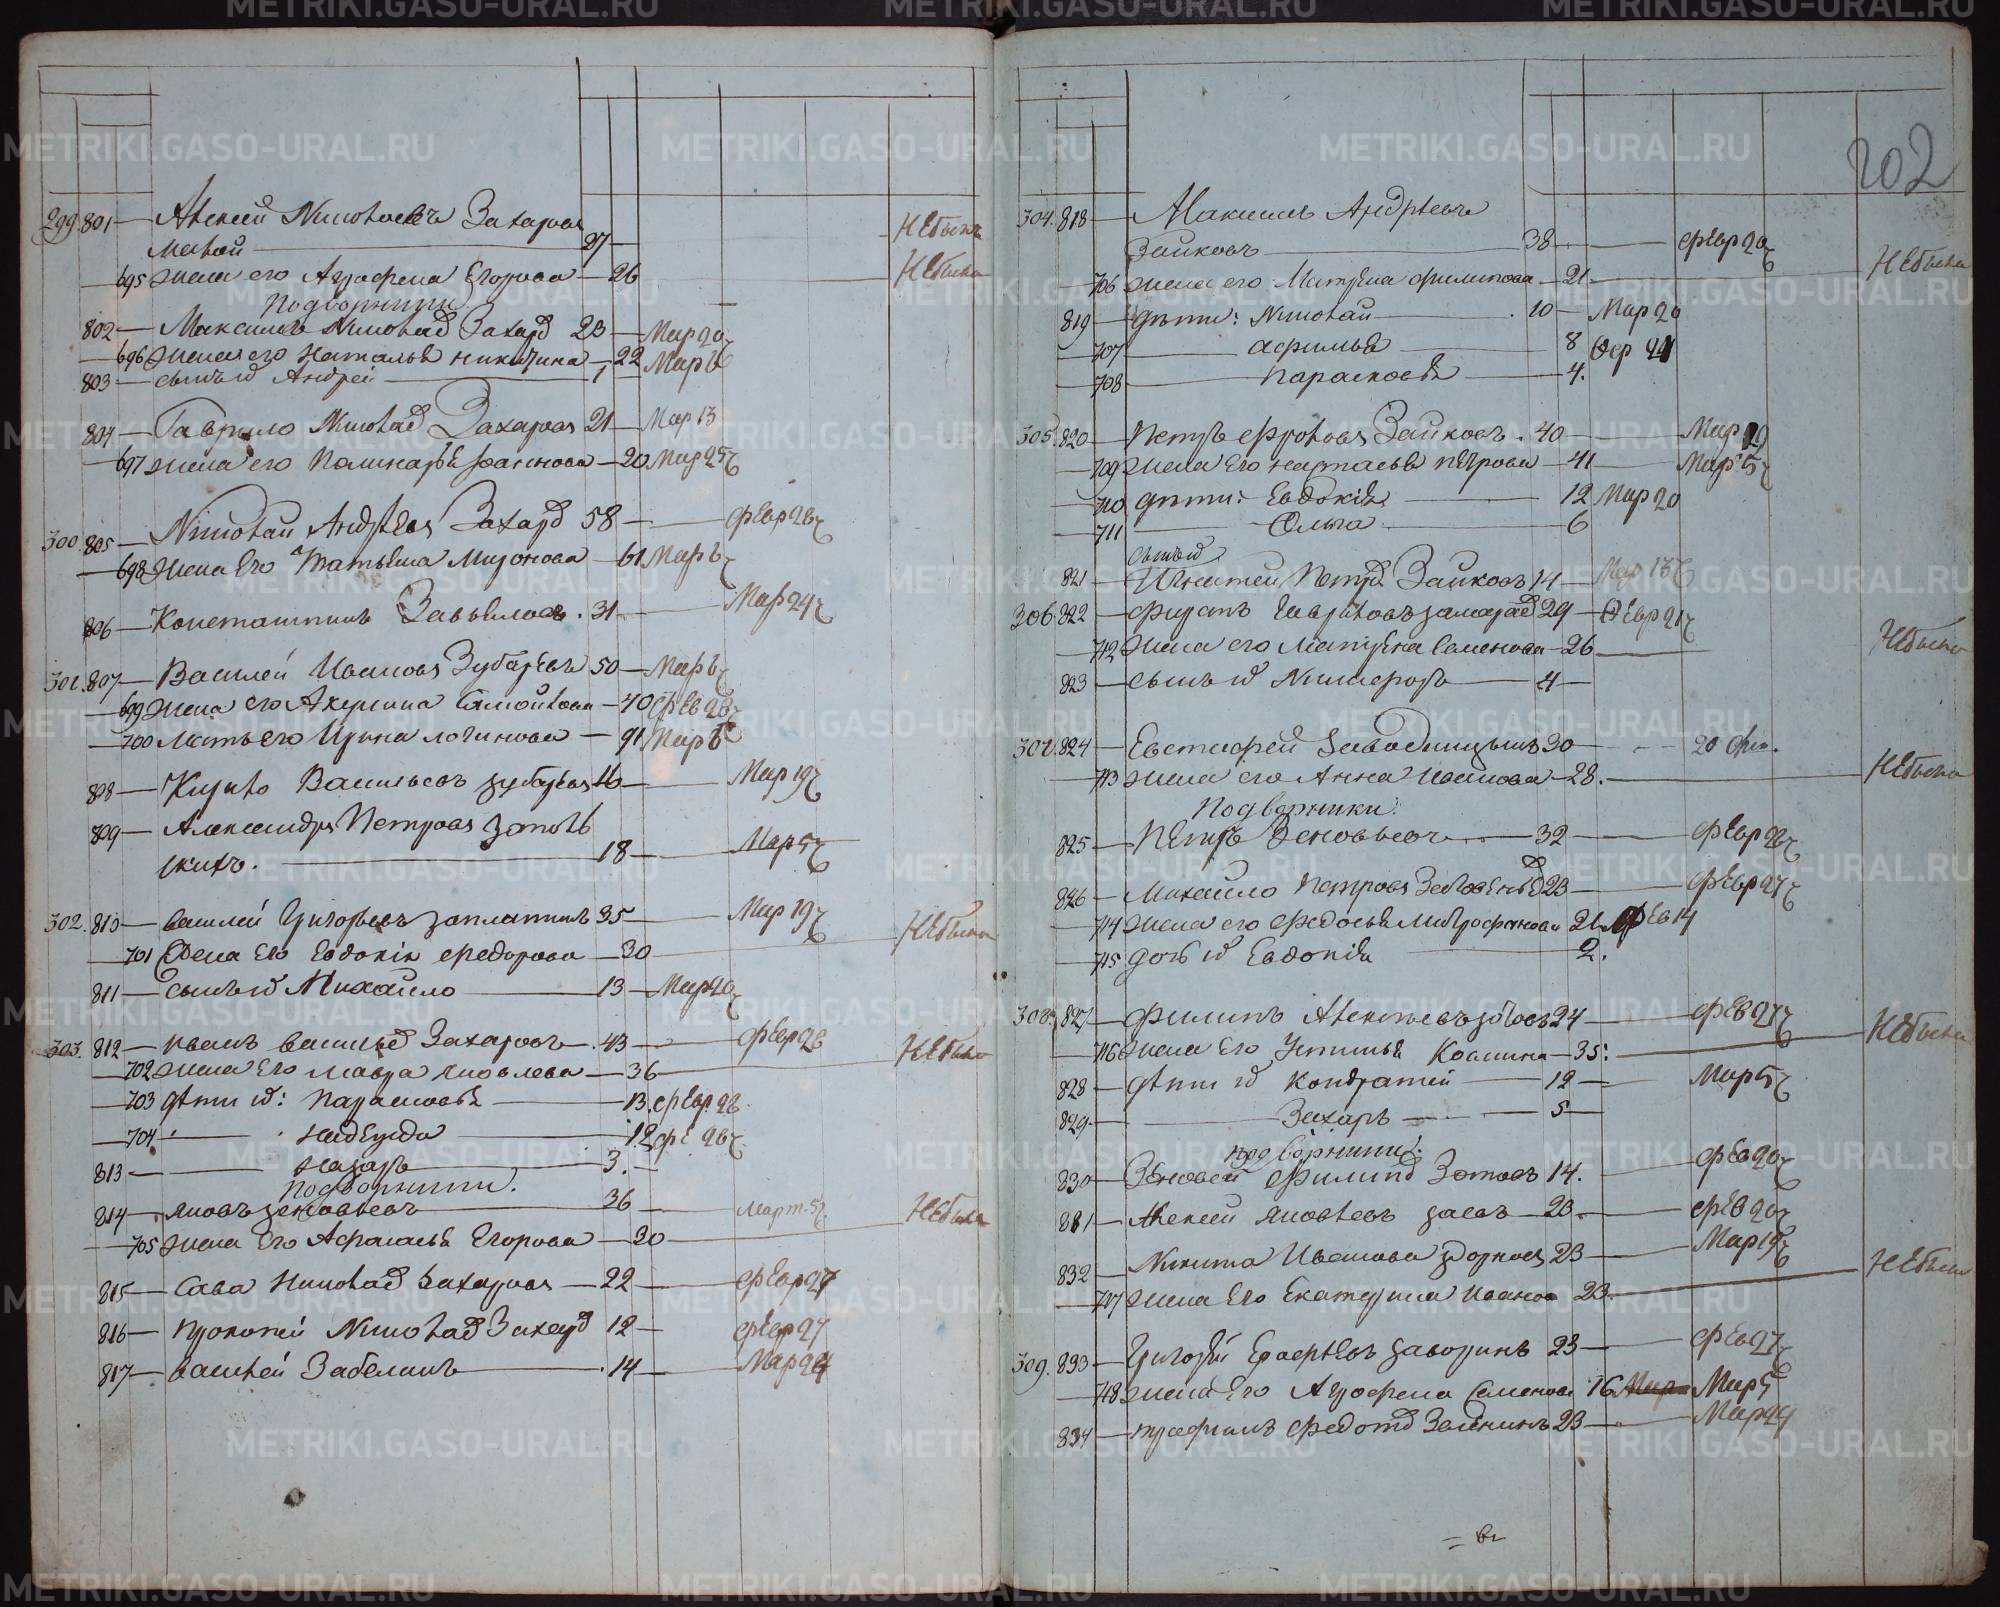 METRIKI.GASO-URAL.RU
299. 801 — Алексей Николаевъ Захаровъ
малой — 27 — Не былъ
695 жена его Аграфена Егорова — 26 Не была
Подворники
802 — Максимъ Николаев Захар 23 — Мар 20
696 жена его Наталья Никитина — 22 Мар
803 — сынъ их Андрей — 1
804 — Гаврило Николаев Захаровъ 21 — Мар 13
697 жена его — 20 Мар 25
300. 805 — Николай Андреевъ Захар 58 — Февр 28
698 жена его Татьяна Миронова — 61 Мар
806 — Константинъ Завьяловъ . 31 — Мар 24
301. 807 — Василей Ивановъ Зубаревъ 50 — Мар
699 жена его Акулина Самойлова — 40 Фев 28
700 мать его Ирина Логинова — 91 Мар
808 — Кирило Васильевъ Зубаревъ 16 — Мар 19
809 — Александръ Петровъ
18 — Мар 5
302. 810 — Василей Григорьевъ Заплатинъ 35 — Мар 19
701 жена его Евдокия Федорова — 30 Не была
811 — сынъ их Михайло — 13 — Мар 20
303. 812 — Иванъ Васильев Захаровъ — 43 — Февр 28
702 жена его Мавра Яковлева — 36 Не была
703 дети их: Парасковья — 13. Февр. 28
704 Надежда — 12 Фе 28
813 — Назаръ — 3. —
Подворники.
814 — Яковъ Зеновьевъ — 36 — Март 5
705 жена его Афанасья Егорова — 20 Не была
815 — Сава Николаев Захаровъ — 22 — Февр 27
816 — Прокопей Николаев Захар 12 — Февр 27
817 — Василей Забелинъ — 14 — Мар 24
202
304. 818 — Максимъ Андреевъ
Зайковъ — 38 — Февр 20
706 жена его Матрена Филипова — 21 — Не была
819 — дети: Николай — 10 — Мар 20
707 — Афимья — 8
708 — Парасковья — 4.
305. 820 — Петръ Фроловъ Зайковъ . 40 — Мар 29
709 жена его Настасья Петрова — 41 — Мар 5
710 дети: Евдокия — 12 Мар 20
711 — Ольга — 6
сынъ их
821 — Игнатей Петр. Зайковъ 14 — Мар 13
306. 822 — Фирсъ Гавриловъ 29 — Февр 21
712 жена его Матрена Семенова — 26 — Не была
823 — сынъ их Никифоръ — 4 —
307. 824 — Евстафей Заводницынъ 30 — 20 Фев.
713 жена его Анна Иванова — 28. — Не была
Подворники
825 — Петръ Зеновьевъ — 32 — Февр 28
826 — Михайло Петровъ 23 — Февр 27
714 жена его Федосья Митрофанова 21 Фев 14
715 дочь их Евдокия — 2.
308. 827 — Филипъ Алексеевъ Зотовъ 24 — Фев 27
716 жена его Устинья Козмина — 35: — Не была
828 — дети их Кондратей — 12 — Мар 5
829 — Захаръ — 5 —
подворники:
830 — Зеновей Филип Зотовъ 14. — Фев 20
831 — Алексей Яковлевъ — 23. — Фев 20
832 — Никита Ивановъ 23 — Мар 19
717 жена его Екатерина Иванова 23. — Не была
309. 833 — Григорей Ерафеевъ 23 — Фев 27
718 жена его Аграфена Семенова 16 Мар 5
834 — Трафимъ Федот 23 — Мар 24